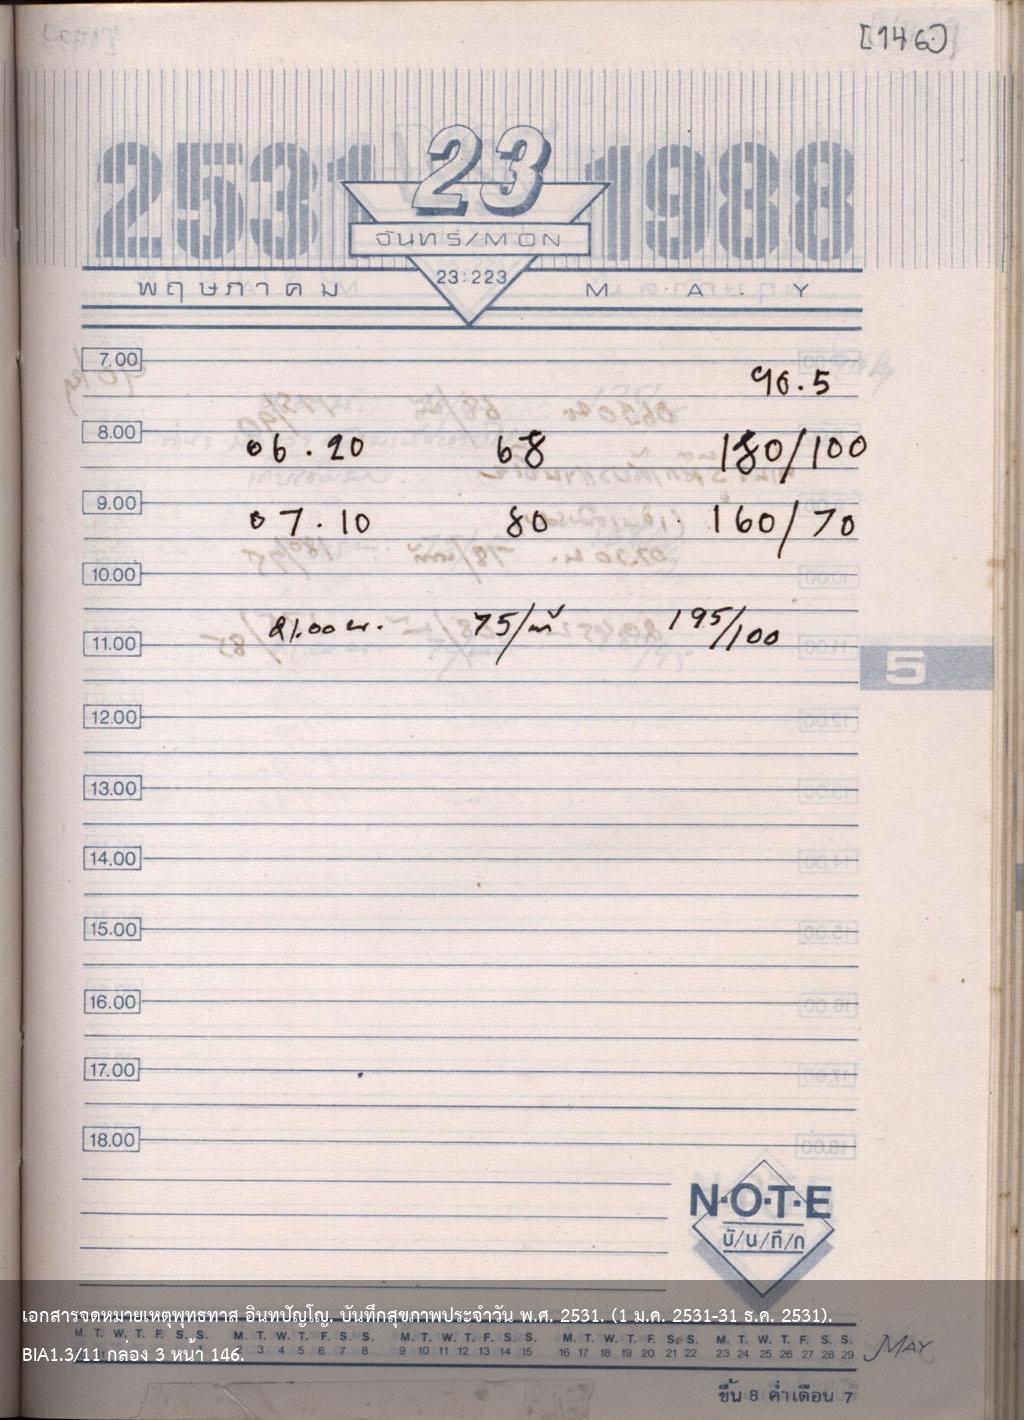 [146]
2531 23 1988
จันทร์/MON
23:223
พฤษภาคม M.A.Y
7.00
90.5
8.00
06.20 68 180/100
9.00
07.10 80 160/70
10.00
21.00 น. 75/นาที 195/100
11.00
5
12.00
13.00
14.00
15.00
16.00
17.00
18.00
N·O·T·E
บั/น/ทึ/ก
เอกสารจดหมายเหตุพุทธทาส อินทปัญโญ. บันทึกสุขภาพประจำวัน พ.ศ. 2531. (1 ม.ค. 2531-31 ธ.ค. 2531).
M. T. W. T. F. S. S. M. T. W. T. F. S. S. M. T. W. T. F. S. S. M. T. W. T. F. S. S. M. T. W. T. F. S. S.
BIA1.3/11 กล่อง 3 หน้า 146.
1 2 3 4 5 6 7 8 9 10 11 12 13 14 15 16 17 18 19 20 21 22 23 24 25 26 27 28 29
MAY
ขึ้น 8 ค่ำเดือน 7